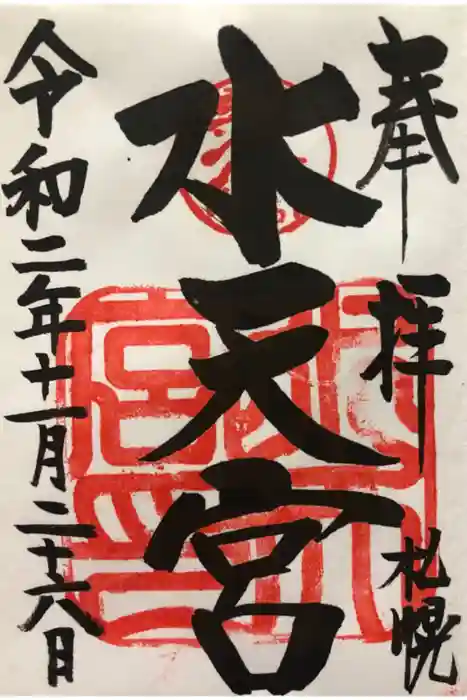 奉拝 札幌
水天宮
令和二年十一月二十六日